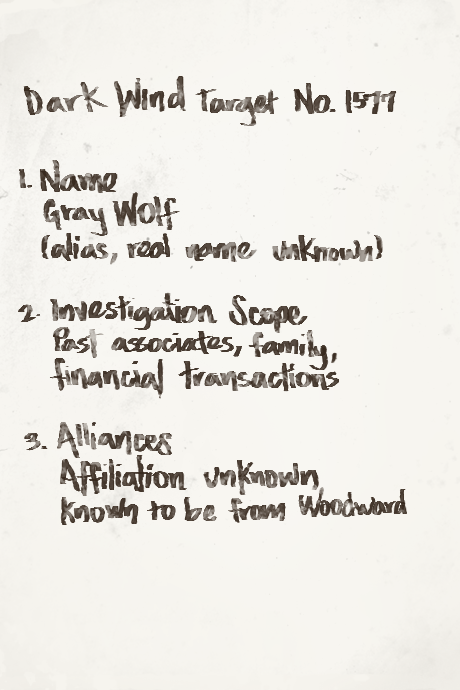 Dark Wind Target No. 1577
1. Name
Gray Wolf
(alias, real name unknown)
2. Investigation Scope
Past associates, family,
financial transactions
3. Alliances
Affiliation unknown
known to be from Woodward